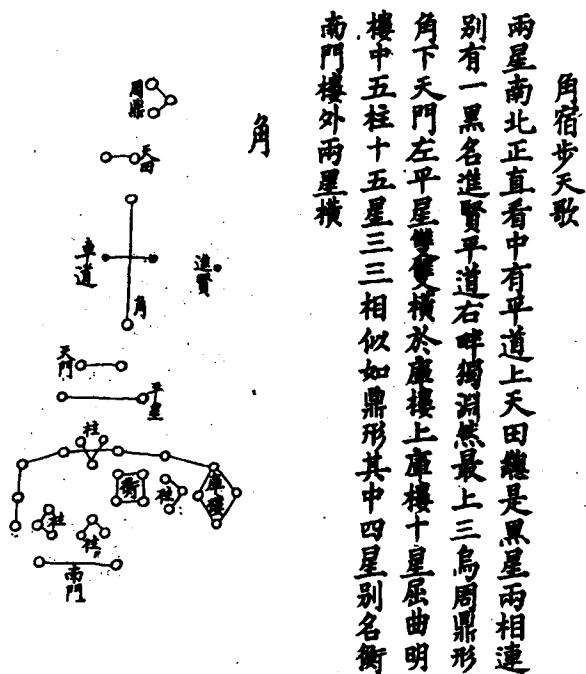 角宿步天歌
兩星南北正直看中有平道上天田總是黑星兩相連
别有一黑名進賢平道右畔獨淵然最上三烏周鼎形
角下天門左平星雙雙橫於庫樓上庫樓十星屈曲明
樓中五柱十五星三三相似如鼎形其中四星别名衡
南門樓外兩星橫
角
周鼎
天田
進賢
車道
角
天門
平星
柱
庫樓
衡
柱
柱
柱
南門